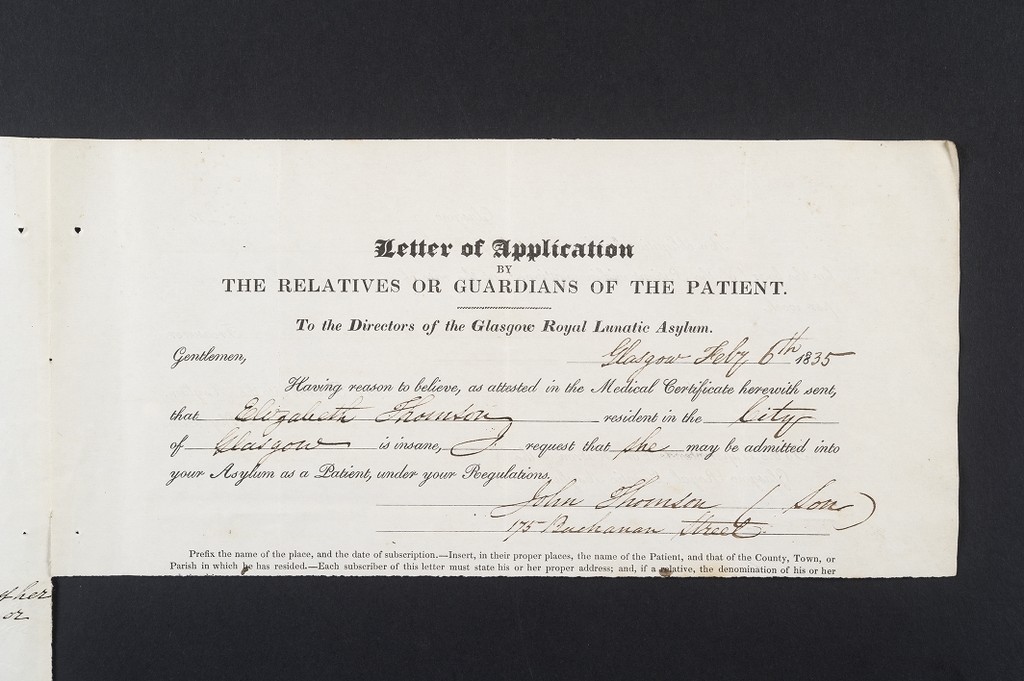 Letter of Application
BY
THE RELATIVES OR GUARDIANS OF THE PATIENT.
To the Directors of the Glasgow Royal Lunatic Asylum.
Gentlemen, Glasgow Feby 6th 1835
Having reason to believe, as attested in the Medical Certificate herewith sent,
that Elizabeth Thomson resident in the City
of Glasgow is insane, I request that she may be admitted into
your Asylum as a Patient, under your Regulations.
John Thomson (Son)
175 Buchanan Street
Prefix the name of the place, and the date of subscription.—Insert, in their proper places, the name of the Patient, and that of the County, Town, or
Parish in which he has resided.—Each subscriber of this letter must state his or her proper address; and, if a relative, the denomination of his or her
or